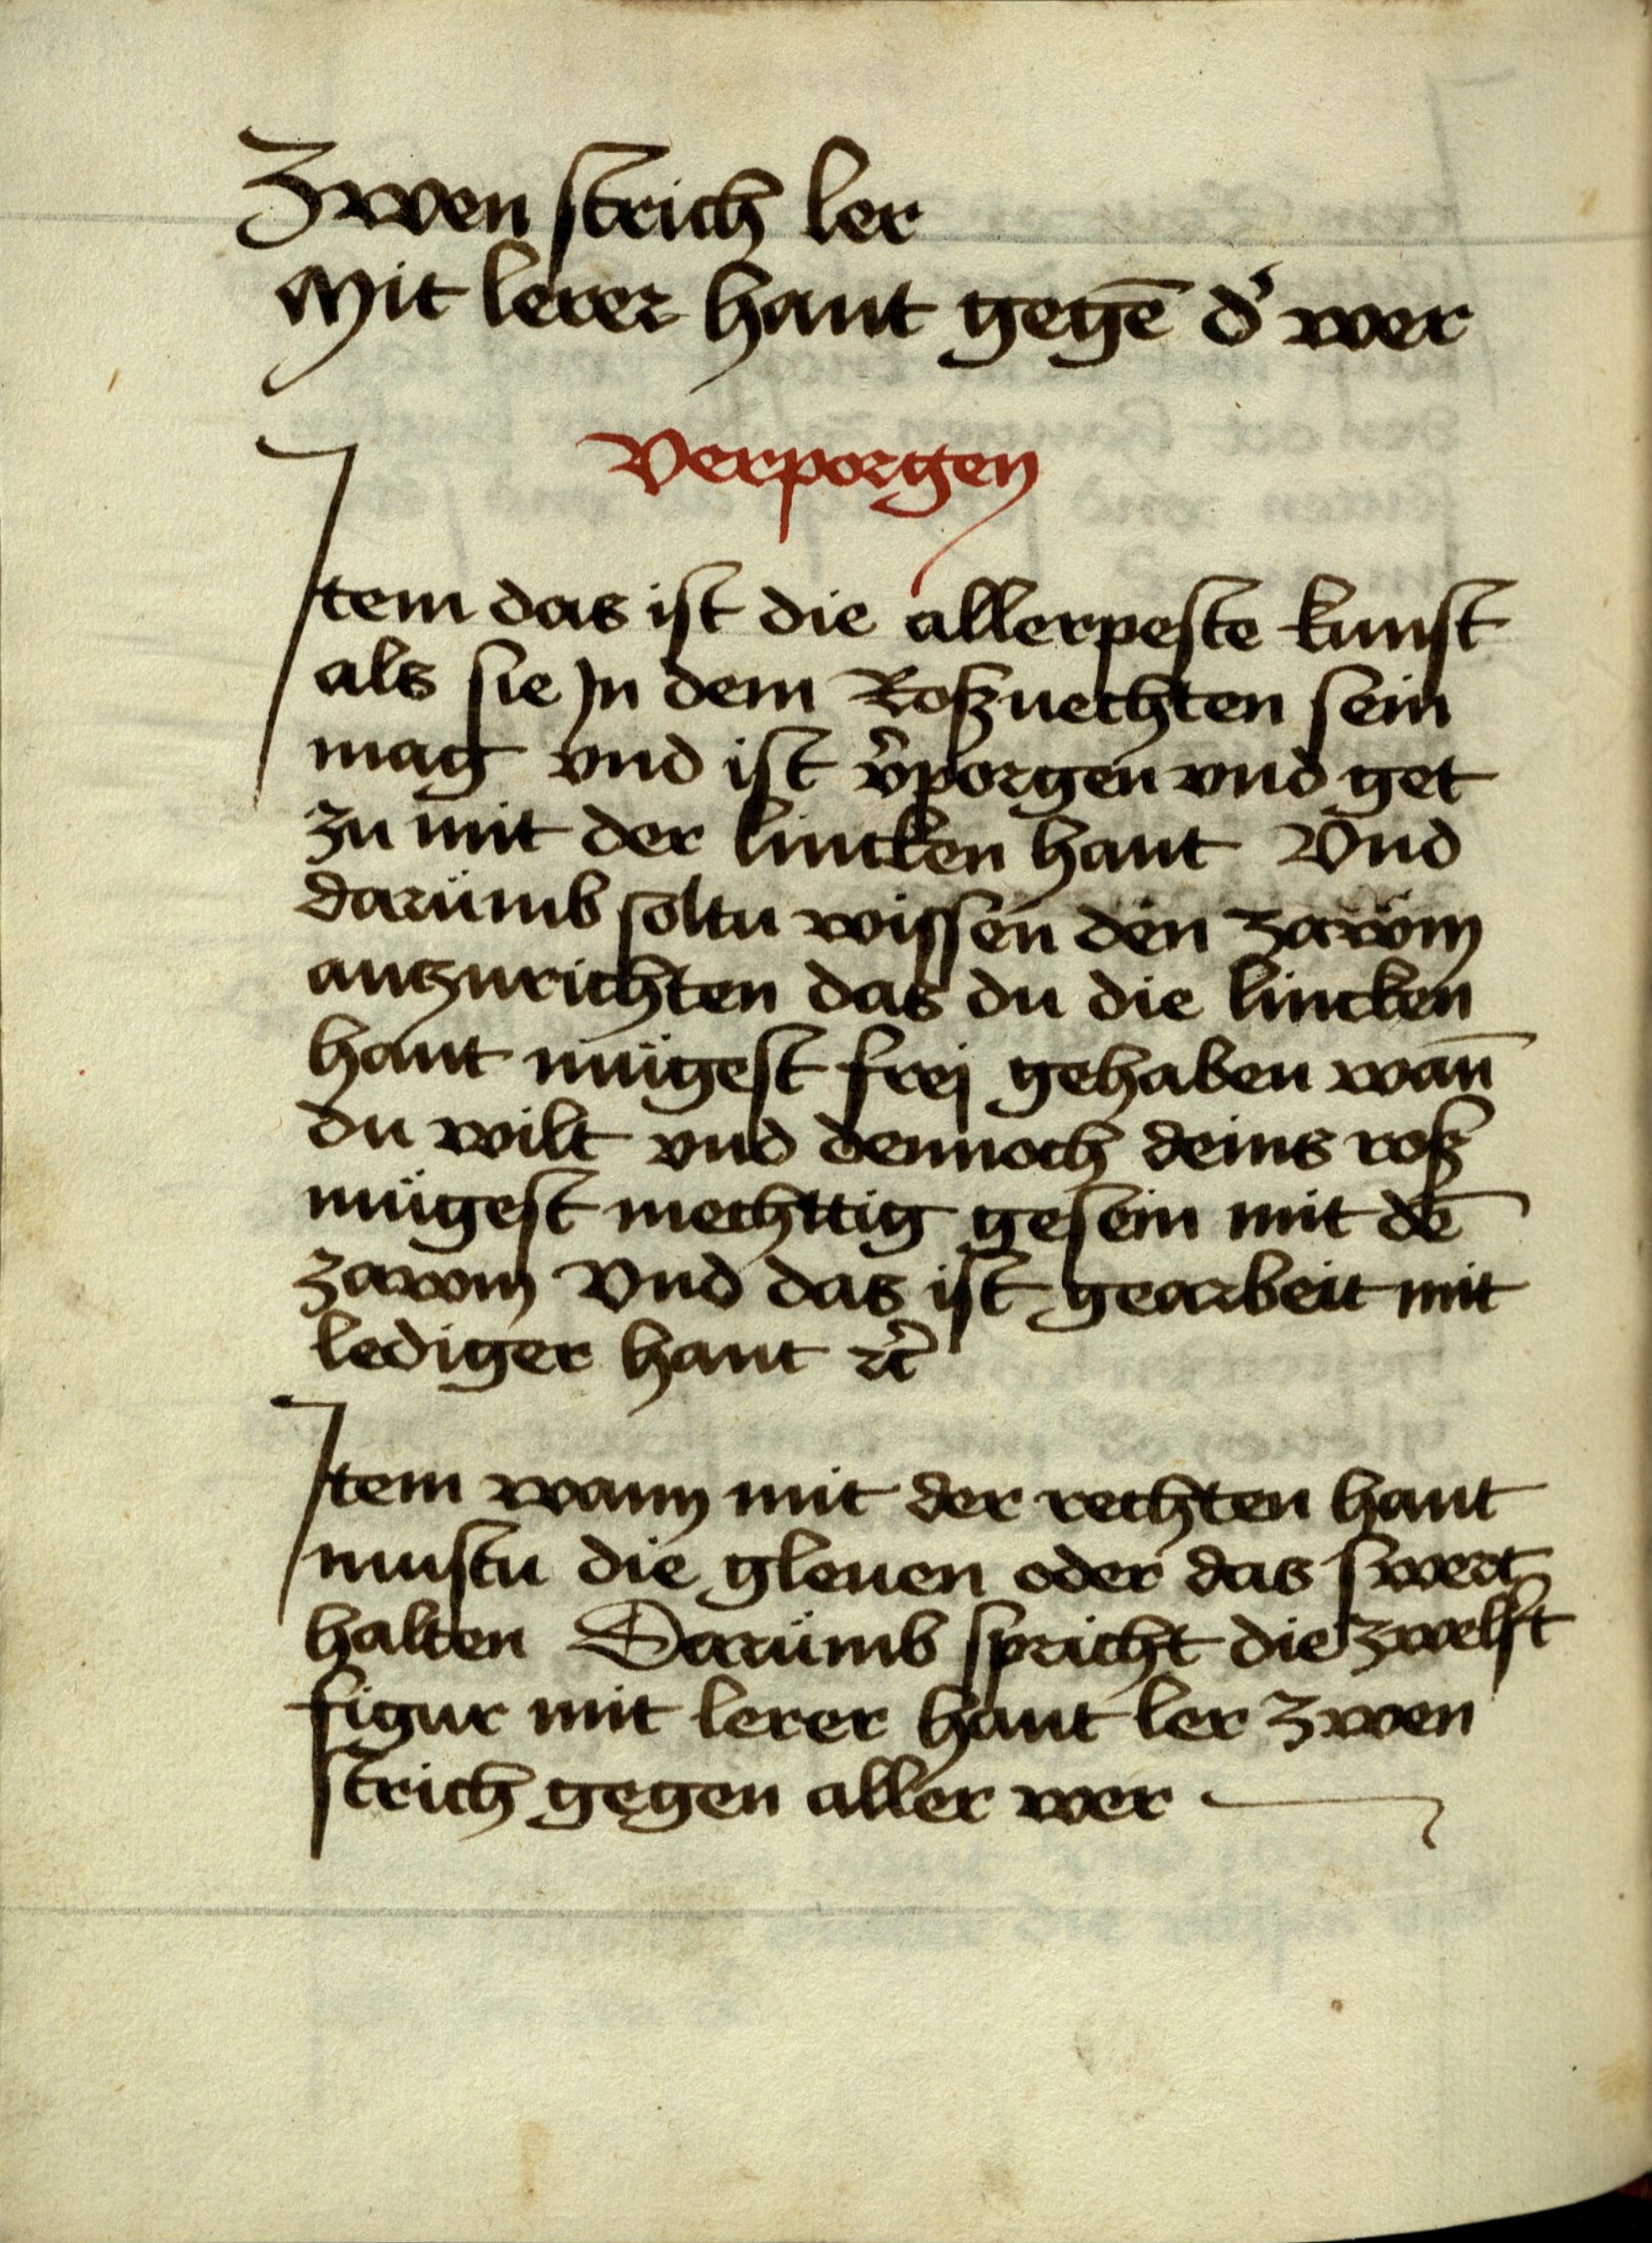 Zwen strich ler
Mit lerer hant gegē d' wer
Verporgen
Item das ist die allerpeste kunst
als sie Jn dem Roßuechten sein
mag vnd ist v̾porgen vnd get
zu mit der lincken hant Vnd
darümb soltu wissen den zawm
anzurichten das du die lincken
hant mügest frej gehaben wan̄
du wilt vnd dennoch deins roß
mügest mechttig gesein mit dē
zawm Vnd das ist gearbeit mit
lediger hant ꝛc̾
Item wann mit der rechten hant
mustu die gleuen oder das swert
halten Darümb spricht die zwelft
figur mit lerer hant ler zwen
strich gegen aller wer